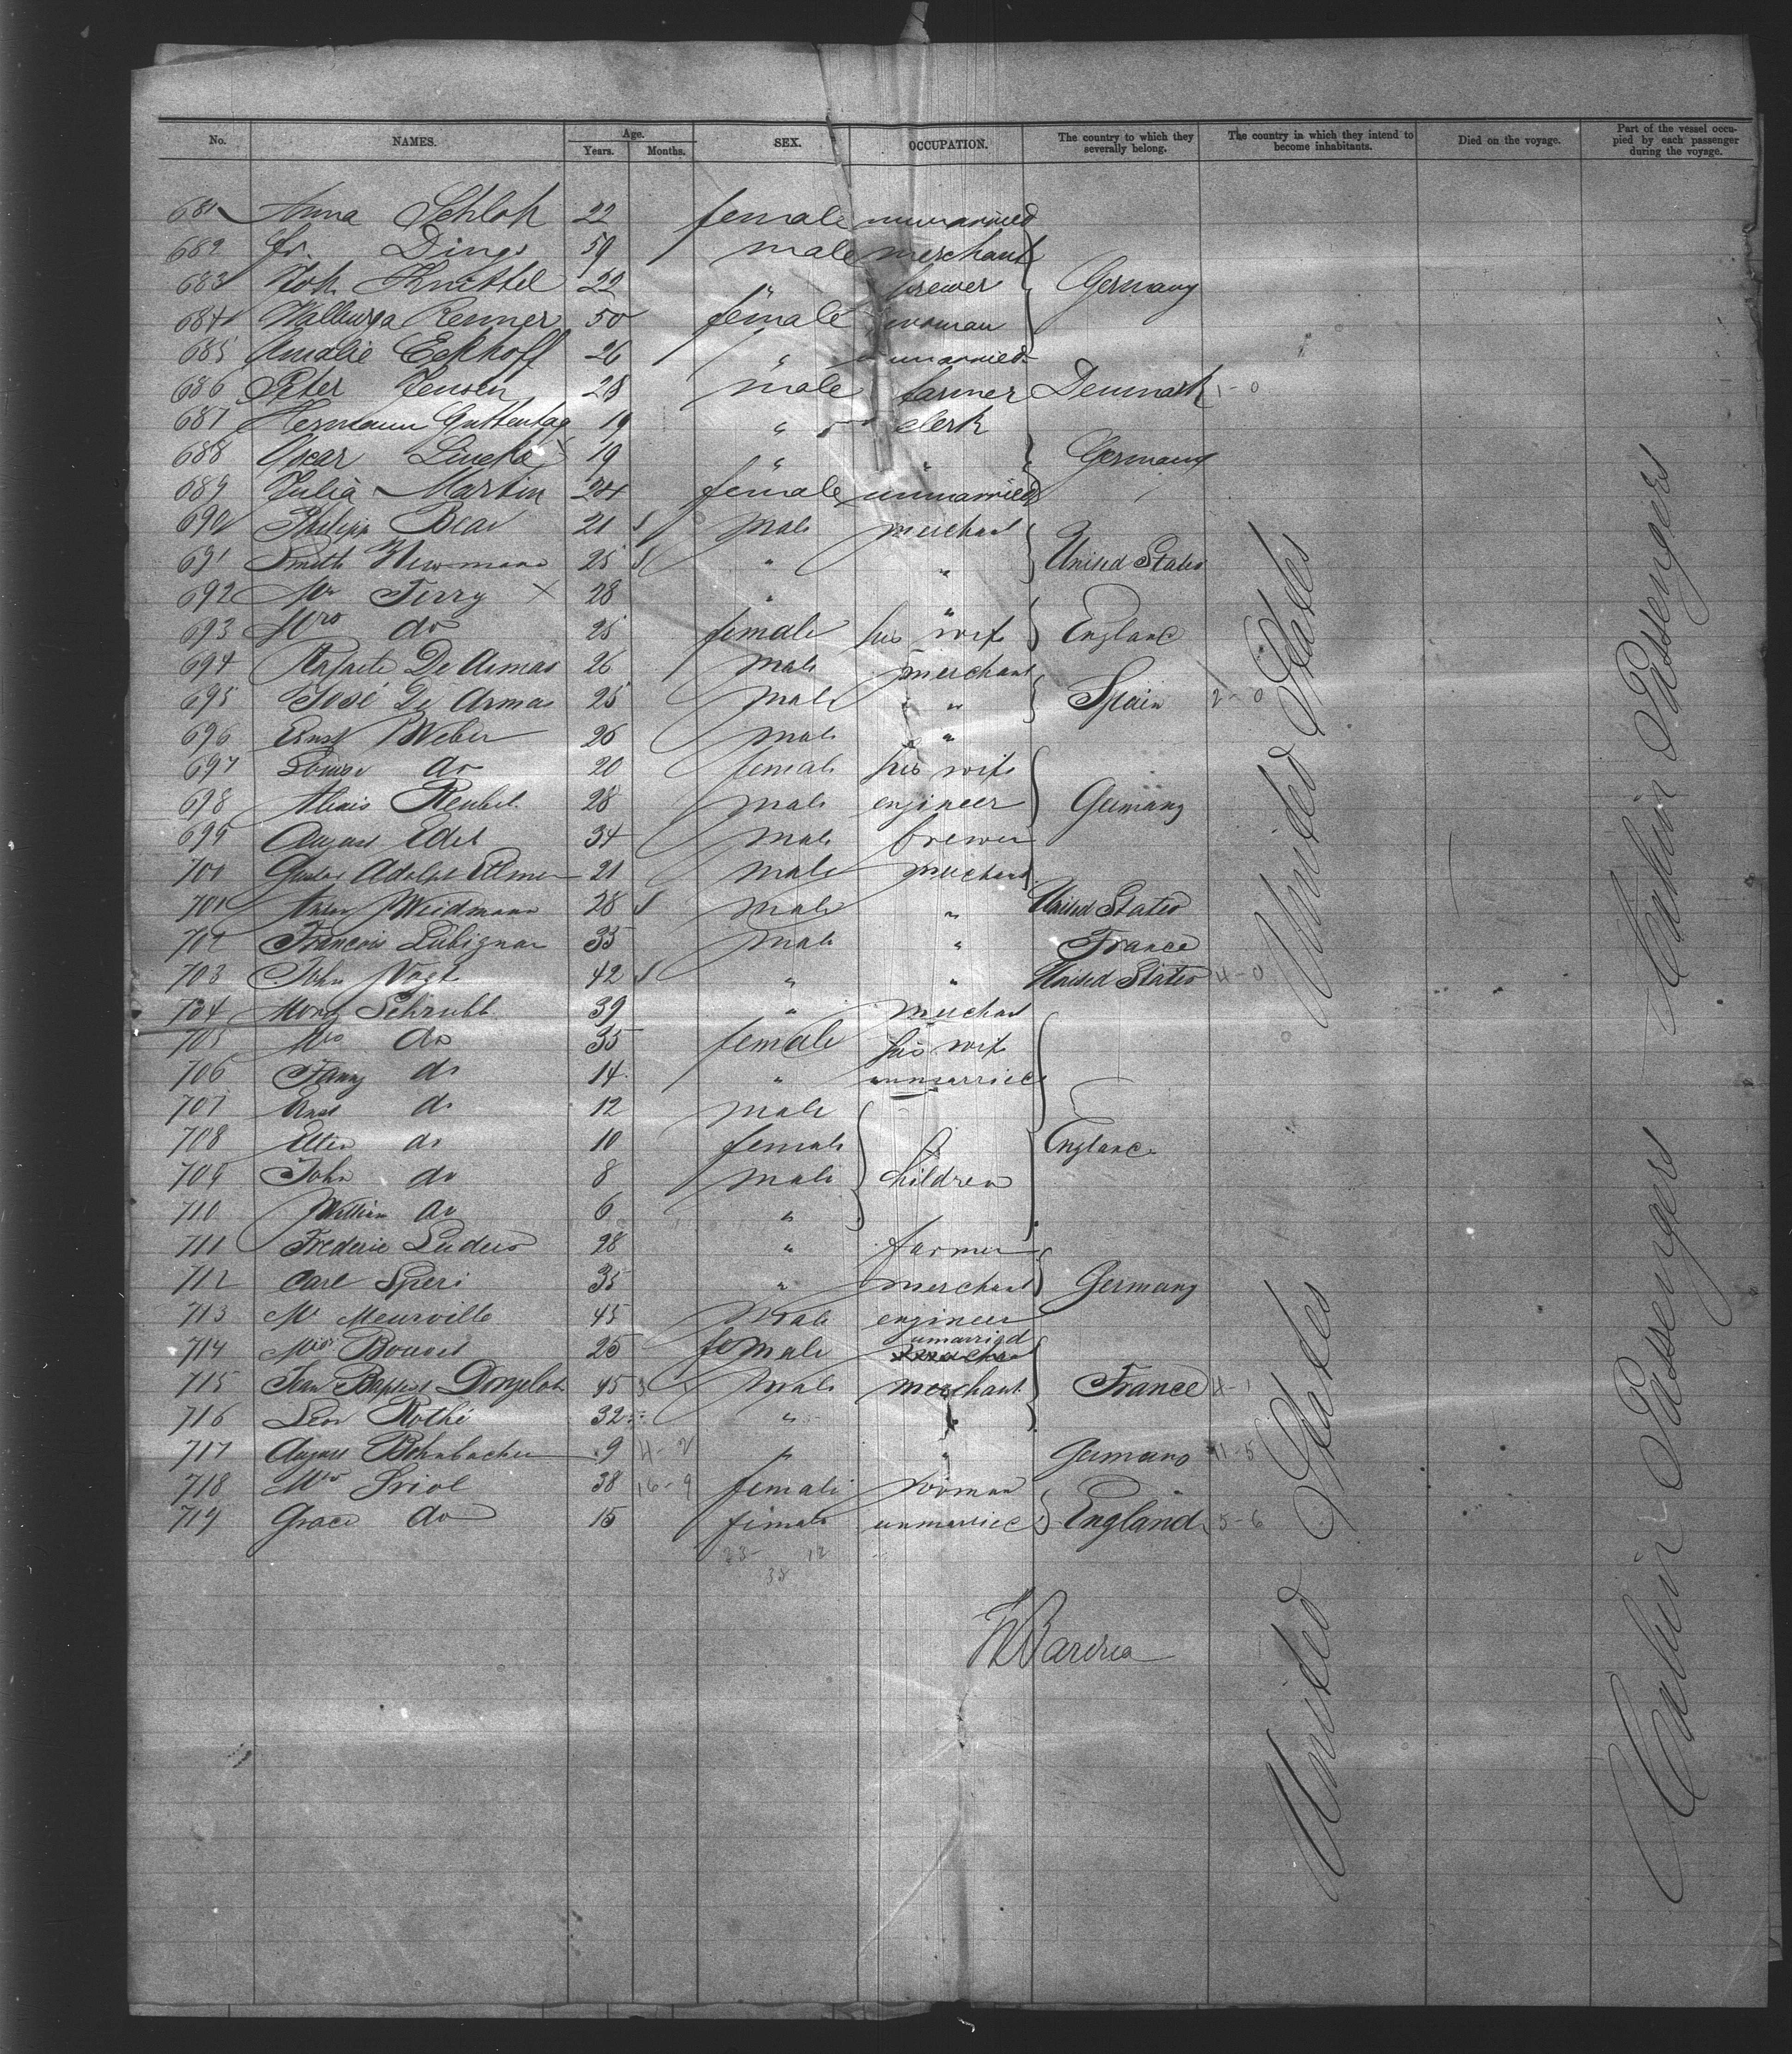 No. NAMES. Age. Years. Months. SEX. OCCUPATION. The country to which they severally belong. The country in which they intend to become inhabitants. Died on the voyage. Part of the vessel occupied by each passenger during the voyage.
681 Anna Schloh 22 female unmarried
682 Fr. Dings 59 male merchant
683 Joh. Knittel 22 " brewer Germany
684 Wallburga Renner 50 female woman
685 Amalie Eckhoff 26 " unmarried
686 Peter Jensen 28 male farmer Denmark 1-0
687 Hermann Guttentag 19 " clerk
688 Oscar Lincke 19 " " Germany
689 Julia Martin 24 female unmarried
690 Philipp Bear 21 male merchant
691 Smith Newmann 25 " " United States
692 Mr Terry X 28 " "
693 Mrs do 25 female his wife England
694 De Armas 26 male merchant
695 José De Armas 25 male " Spain 2-0
696 Ernst Weber 26 male "
697 Louise do 20 female his wife
698 Alexis Reubel 28 male engineer Germany
699 August Edel 34 male brewer
700 Gustav Adolph 21 male merchant
701 Weidmann 28 male " United States
702 Francois Lubignac 35 male " France
703 John Vogt 42 " " United States 4-0
704 Moritz Schrubb 39 " merchant
705 Mrs do 35 female his wife
706 Fanny do 14 " unmarried
707 do 12 male
708 Ellen do 10 female England
709 John do 8 male Children
710 William do 6 "
711 Frederic Luders 28 " farmer
712 Carl Speri 35 " merchant Germany
713 Mr Meurville 45 male engineer
714 Miss 25 female unmarried
715 Jean Baptist Donzelot 45 male merchant France 4-1
716 Leon Rothé 32 " "
717 August 9 4-2 " " Germany 11-5
718 Mrs Sriol 38 16-9 female woman
719 Grace do 15 female unmarried England 5-6
23- 12
38
United States
United States
Cabin Passengers
Cabin Passengers